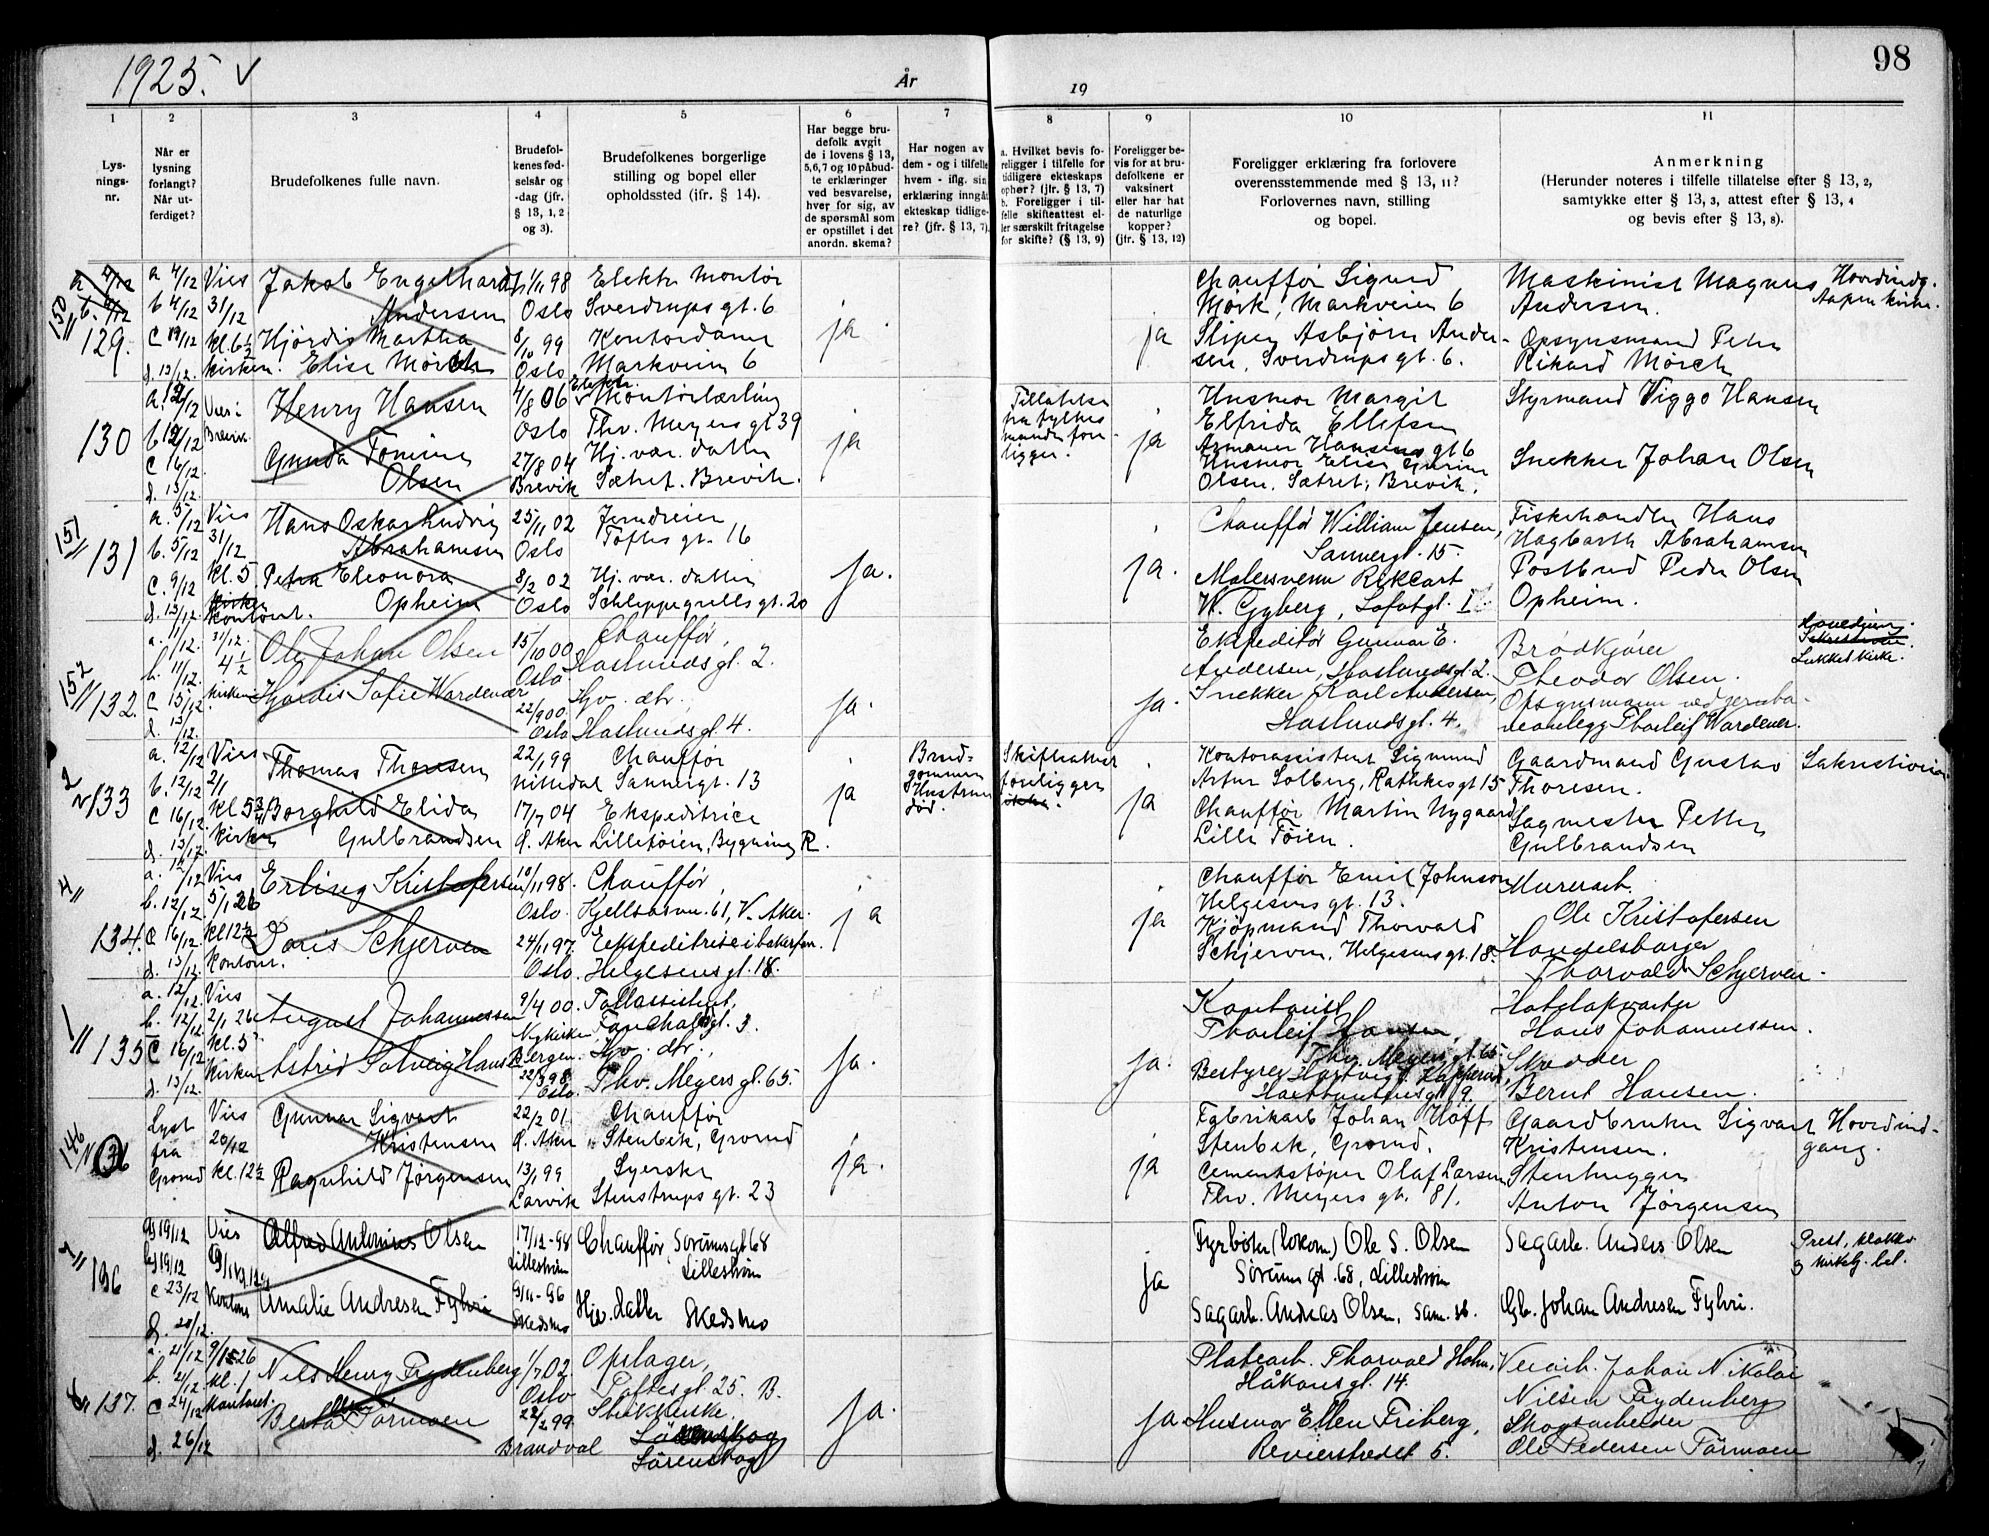 1925. v
År
19
98
1
2
3
4
5
6
7
8
9
10
11
Lys-
nings-
nr.
Når er
lysning
forlangt?
Når ut-
ferdiget?
Brudefolkenes fulle navn.
Brudefol-
kenes fød-
selsår og
-dag (jfr.
§ 13, 1, 2
og 3).
Brudefolkenes borgerlige
stilling og bopel eller
opholdssted (jfr. § 14).
Har begge bru-
defolk avgit
de i lovens § 13,
5,6,7 og 10 påbud-
te erklæringer
ved besvarelse,
hver for sig, av
de spørsmål som
er opstillet i det
anordn. skema?
Har nogen av
dem - og i tilfelle
hvem - iflg. sin
erklæring inngåt
ekteskap tidlige-
re? (jfr. § 13, 7).
a. Hvilket bevis fo-
religger i tilfelle for
tidligere ekteskaps
ophør? (jfr. § 13, 7)
b. Foreligger i til-
felle skifteattest el-
ler særskilt fritagelse
for skifte? (§ 13, 9)
Foreligger be-
vis for at bru-
defolkene er
vaksinert
eller har hat
de naturlige
kopper?
(jfr. § 13, 12)
Foreligger erklæring fra forlovere
overensstemmende med § 13, 11?
Forlovernes navn, stilling
og bopel.
Anmerkning
(Herunder noteres i tilfelle tillatelse efter § 13, 2,
samtykke efter § 13, 3, attest efter § 13, 4
og bevis efter § 13, 8).
150
129.
a 4/12
b 4/12
c 19/12
d. 13/12.
Vies
31/12
kl. 6 1/2
kirken.
Jakob Engelhardt
Andersen
Hjördis Martha
Elise Mørch
1/11 98
Oslo
8/10 99
Oslo
Elektr. montør
Sverdrups gt. 6
Kontordame
Markveien 6
ja.
ja
Chauffør Sigurd
Mörk, Markveien 6
Sliper Asbjørn Ander-
sen, Sverdrups gt. 6.
Maskinist Magnus
Andersen.
Opsynsmand Peter
Rikard Mörch
Hovedindg.
Aapen kirke.
130
c 16/12
d. 13/12.
Vies i
Brevik.
Henry Hansen
Gunda Tomine
Olsen
4/8 06
Oslo
27/8 04
Brevik
Elektr.
Montørlærling
Thv. Meyers gt 39
Hj. vær. datter
Sætret. Brevik.
ja
Tillatelse
fra fylkes
manden fore-
ligger.
ja
Husmor Margit
Elfrida Ellefsen
Armauer Hansens gt 6
Husmor Elise Gurine
Olsen. Sætret, Brevik.
Styrmand Viggo Hansen
Snekker Johan Olsen
151
131
a. 5/12
b. 5/12
c. 9/12
d. 13/12.
Vies
31/12
kl. 5
kirken
kontoret.
Hans Oskar Ludvig
Abrahamsen
Petra Eleonora
Opheim
25/11 02
Oslo
8/2 02
Oslo
Jerndreier
Toftes gt. 16
Hj. vær. datter
Schleppegrells gt. 20
ja.
ja.
Chauffør William Jensen,
Sannergt. 15.
Malersvenn Rikcart
W. Gyberg, Lofotgt. 1
Fiskehandler Hans
Hagbarth Abrahamsen
Postbud Peder Olsen
Opheim.
152
132.
a. 11/12.
b. 11/12.
c 15/12
d. 13/12.
31/12.
4 1/2
kirken
Ole Johan Olsen
Hjördis Sofie Wardenær
15/10 00
Oslo.
22/9 00.
Oslo
Chauffør,
Haslunds gt. 2.
Hjv. dtr.,
Haslunds gt. 4.
ja.
ja.
Ekspeditør Gunnar E.
Andersen, Haslundsgt. 2.
Snekker Karl Andersen,
Haslunds gt. 4.
Brødkjører
Theodor Olsen.
Opsynsmann ved jernba-
neanlegg Thorleif Wardenær.
Hovedgjeng.
Sakristiet
Lukket kirke.
2
133
a. 12/12
b. 12/12
c 16/12.
d. 13/12.
Vies
2/1
kl 5 3/4
kirken
Thomas Thoresen
Borghild Elida
Gulbrandsen
22/1 99
Nittedal
17/7 04
Ø. Aker
Chauffør
Sannergt. 13
Ekspeditrice
Lilletøien, Bygning R.
ja
Brud-
gommen
Hustruen
død.
Skifteattest
foreligger
ja
Kontorassistent Sigmund
Artur Solberg, Rathkes gt 15
Chauffør Martin Nygaard
Lille Tøien.
Gaardmand Gustav
Thoresen.
Sagmester Petter
Gulbrandsen
Sakristien
4
134.
a. 12/12
b. 12/12.
c 16/12.
d. 13/12.
Vies
5/1 26
kl 12 1/2
kontoret.
Erling Kristofersen
Doris Schjerven
10/11 98.
Oslo.
24/1 97.
Oslo.
Chauffør,
Kjellsåsvn. 61, V. Aker.
Ekspeditrise i bakerforr.
Helgesens gt. 18.
ja
ja
Chauffør Emil Johnson
Helgesens gt. 13.
Kjöpmand Thorvald
Schjerven, Helgesens gt. 18.
Murerarb.
Ole Kristofersen
Handelsborger
Thorvald Schjerven.
1
135
a. 12/12.
b. 12/12.
c 16/12
d. 13/12.
Vies
2/1 26
kl. 5
kirken
August Johannessen
Astrid Solveig Hansen
9/4 00.
Nykirken,
Bergen.
22/3 98.
Oslo.
Tollassistent,
Fauchaldsgt. 3.
Hjv. dtr.,
Thv. Meyers gt. 65.
ja.
ja.
Kontorist
Thorleif Hansen,
Thv. Meyers gt. 65.
Bestyrer
Hotelopvarter
Hans Johannessen.
Skredder
Bernt Hansen.
146
136
Lyst
fra
Grorud
Vies
20/12
kl. 12 1/2
Gunnar Sigvart
Kristensen
Ragnhild Jørgensen
22/2 01
Ø. Aker
13/1 99
Larvik
Chauffør
Stenbek, Grorud
Syerske
Stenstrups gt. 23
ja.
ja
Fabrikarb Johan Hoff
Stenbek, Grorud.
Cementstøper Olaf Larsen
Thv. Meyers gt. 81.
Gaardbruker Sigvart
Kristensen.
Stenhugger
Anton Jørgensen
Hovedind-
gang.
136
a) 19/12
b) 19/12
c 23/12
d. 20/12.
Vies
Kontoret
Alfred Antonius Olsen
Amalie Andresen Fyhri
17/12-98
Lillestrøm
9/11-96
Skedsmo
Chauffør, Sørumsgt 68
Lillestrøm
Hjv. datter Skedsmo
ja
Fyrbøter (lokom.) Ole S. Olsen
Sørums gt. 68, Lillestrøm
Sagarb. Andreas Olsen, sam. st.
Sagarb. Anders Olsen
Gb. Johan Andresen Fyhri.
Prest, klokker
og kirkelg. bet.
137.
a. 21/12
b. 21/12
c 24/12
d. 26/12
9/1 26
kl. 1
kontoret.
Nils Henry Frydenberg
Berta Tørmoen
1/7 02.
Oslo
22/2 99.
Brandval
Opslager,
Toftes gt. 25. B.
Strikkerske,
Lörenskog
ja.
ja
Platearb. Thorvald Holm,
Håkons gt. 14.
Husmor Ellen Friberg,
Revierstredet 5.
Veiarb. Johan Nikolai
Nilsen Frydenberg
Skogsarbeider
Ole Pedersen Tørmoen